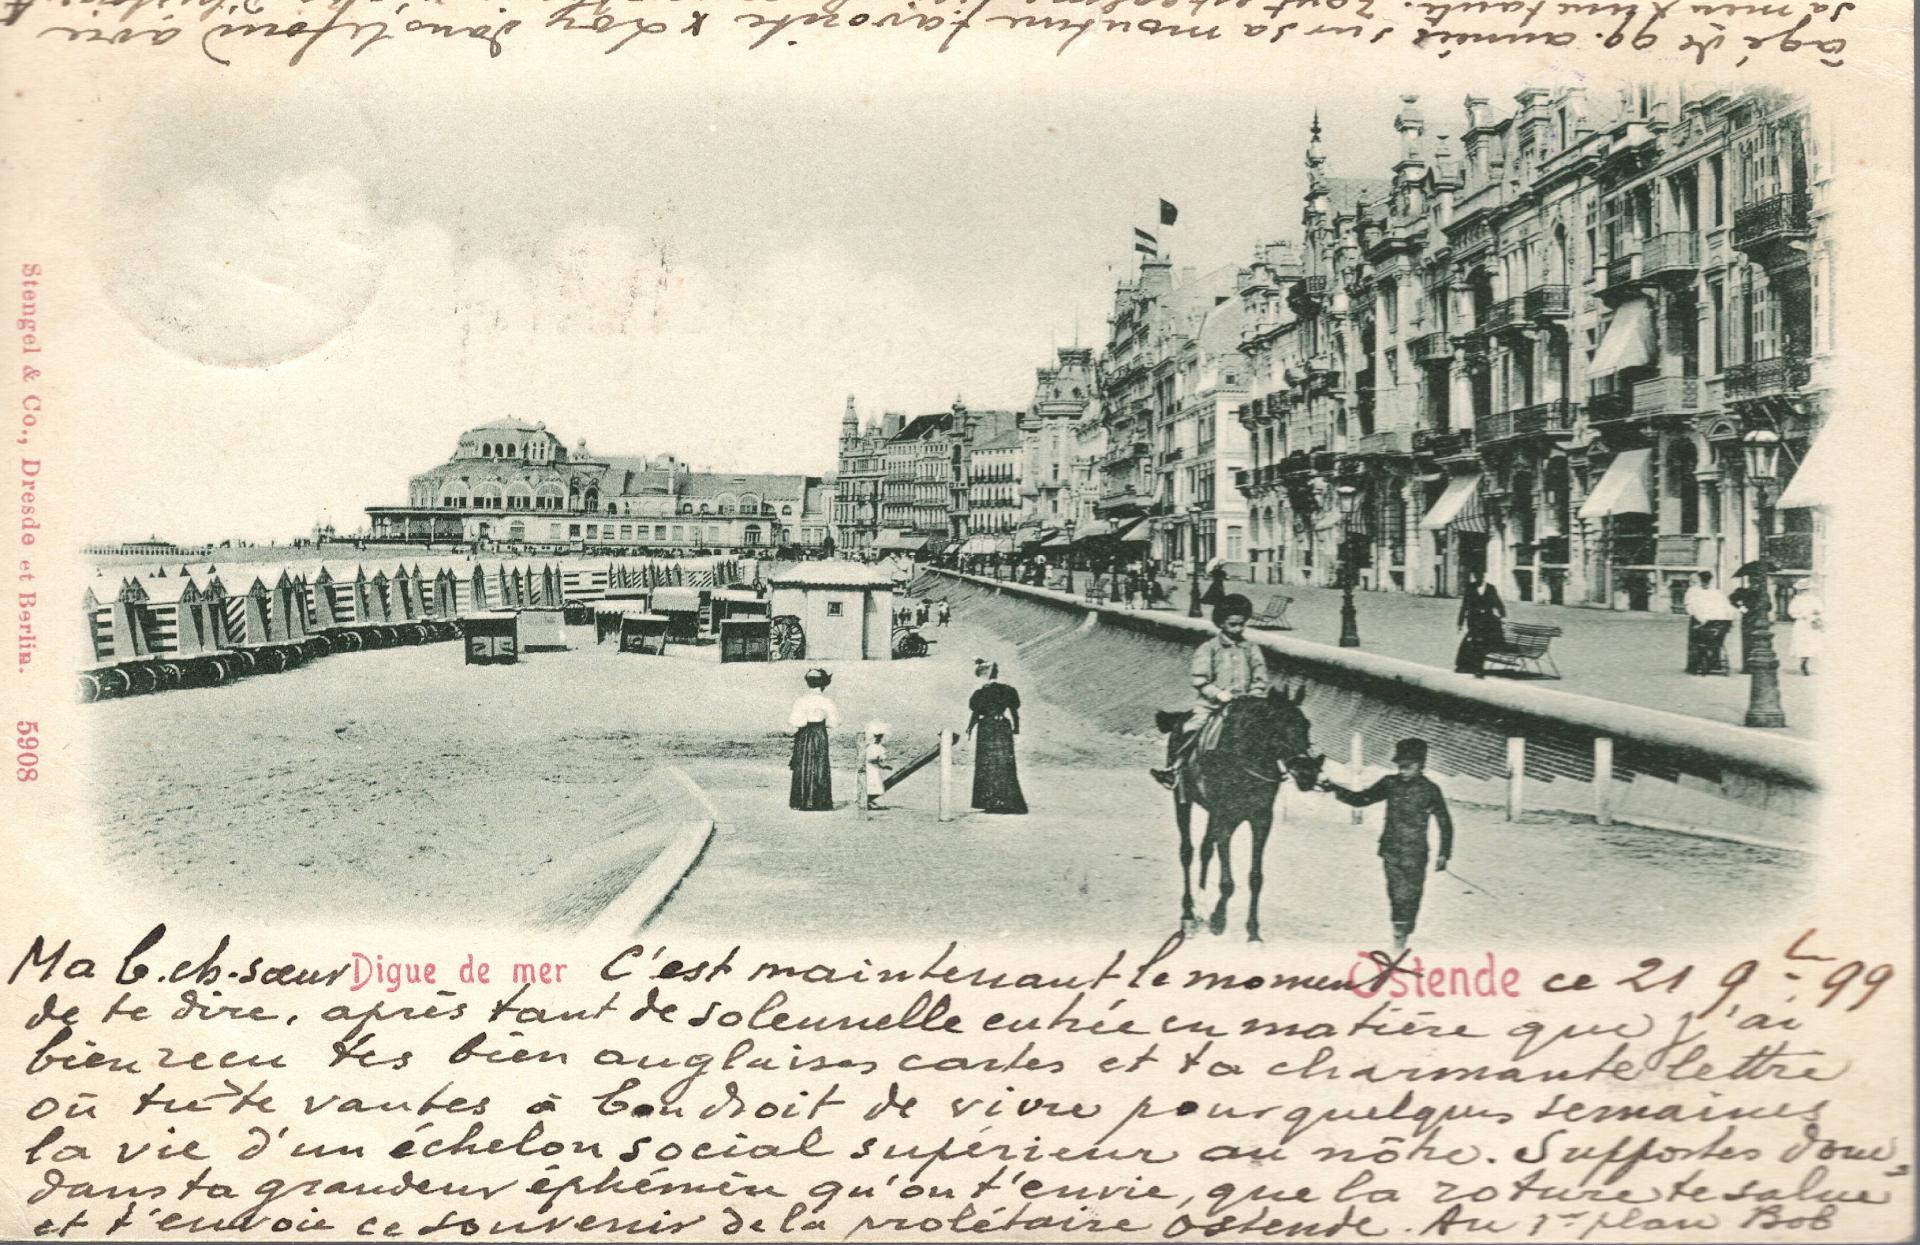 Stengel & Co., Dresde et Berlin. 5908
Digue de mer
Ostende
Ma b. ch. sœur C'est maintenant le moment ce 21 9bre 99
de te dire, après tant de solennelle entrée en matière que j'ai
bien recu tes bien anglaises cartes et ta charmante lettre
où tu te vantes à bon droit de vivre pour quelques semaines
la vie d'un échelon social supérieur au nôtre. Supportes donc
dans ta grandeur éphémère qu'on t'envie, que la roture te salue
et t'envoie ce souvenir de la prolétaire Ostende. Au 1er plan Bob
âgé de 99 années sur sa monture favorite & Loy dans le fond avec
sa tante. Tout